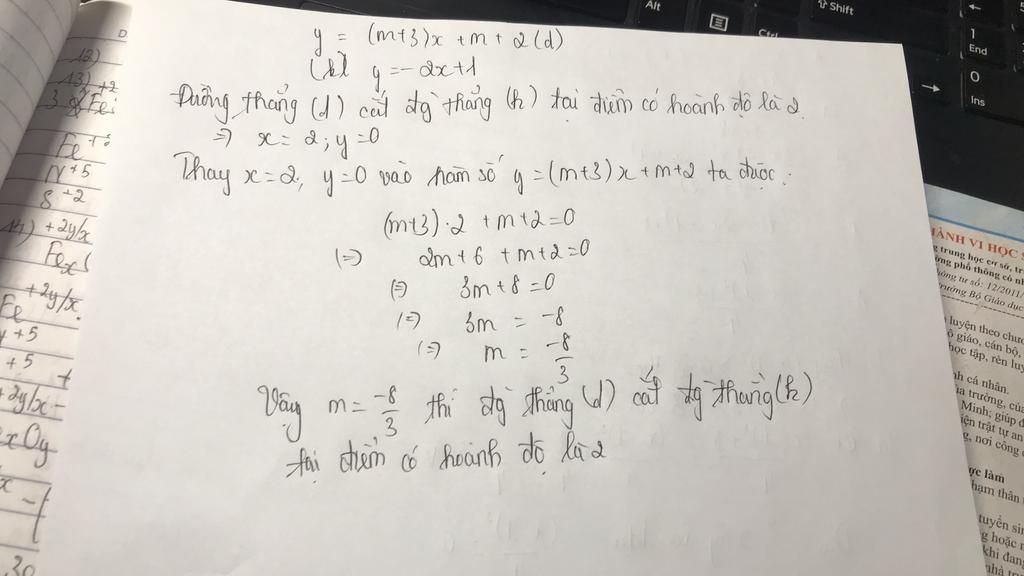 y = (m+3)x + m + 2 (d)
(k) y = -2x+1
Đường thẳng (d) cắt đg thẳng (k) tại điểm có hoành độ là 2
=> x = 2 ; y = 0
Thay x=2, y=0 vào hàm số y = (m+3)x + m+2 ta được:
(m+3).2 + m+2 = 0
(=) 2m+6 + m+2 = 0
(=) 3m+8 = 0
(=) 3m = -8
(=) m = -8/3
Vậy m = -8/3 thì đg thẳng (d) cắt đg thẳng (k)
tại điểm có hoành độ là 2
12)
13) +2
N+5
8 -2
+2y/x
Fex
+2y/x
Fe
+5
+5 +
+2y/x -
xOy
30
Alt
Shift
Ctrl
1
End
0
Ins
HÀNH VI HỌC S
g trung học cơ sở, tr
ờng phổ thông có nh
ông tư số: 12/2011/
trưởng Bộ Giáo dục
luyện theo chươ
ô giáo, cán bộ,
học tập, rèn luy
nh cá nhân.
ủa trường, của
Minh; giúp đ
ện trật tự an
g, nơi công
ợc làm
hạm thân
tuyển sin
g hoặc
khi đang
nhà tr